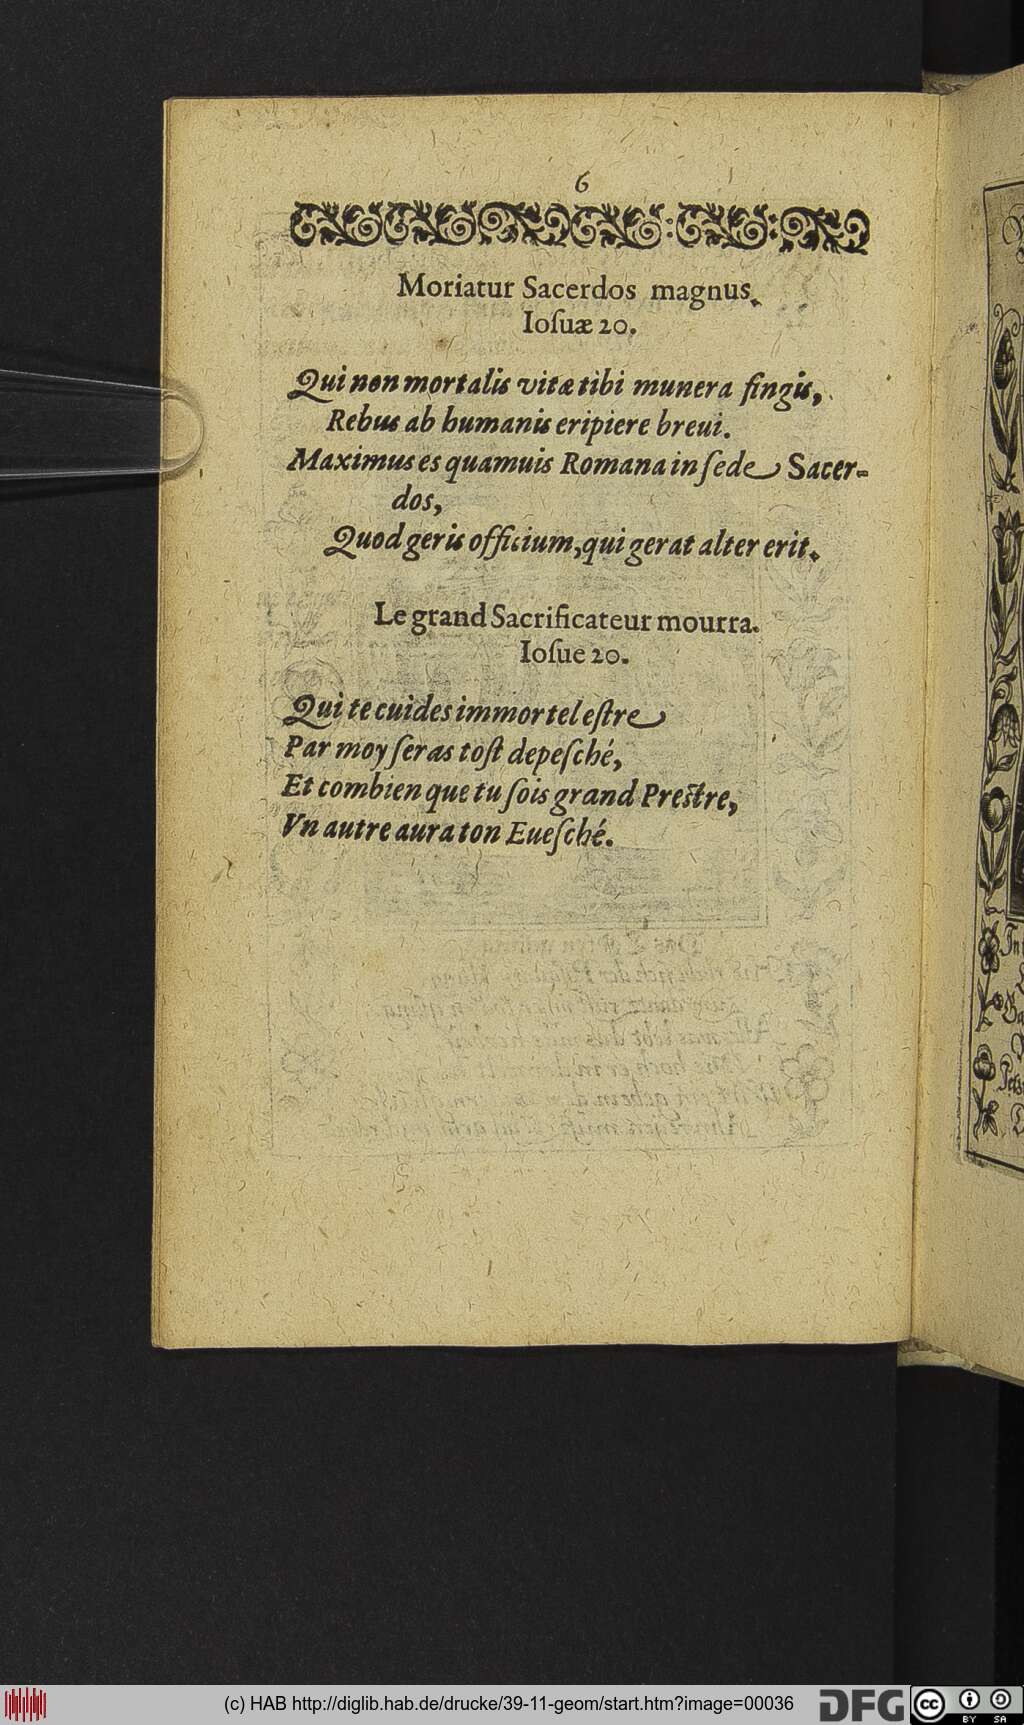 6
Moriatur Sacerdos magnus.
Ioſuæ 20.
Qui non mortalis vitæ tibi munera fingis,
Rebus ab humanis eripiere breui.
Maximus es quamuis Romana in ſede Sacer-
dos,
Quod geris officium, qui gerat alter erit.
Le grand Sacrificateur mourra.
Ioſue 20.
Qui te cuides immortel eſtre
Par moy ſeras toſt depeſché,
Et combien que tu ſois grand Preſtre,
Vn autre aura ton Eueſché.
(c) HAB http://diglib.hab.de/drucke/39-11-geom/start.htm?image=00036
DFG
cc
BY SA